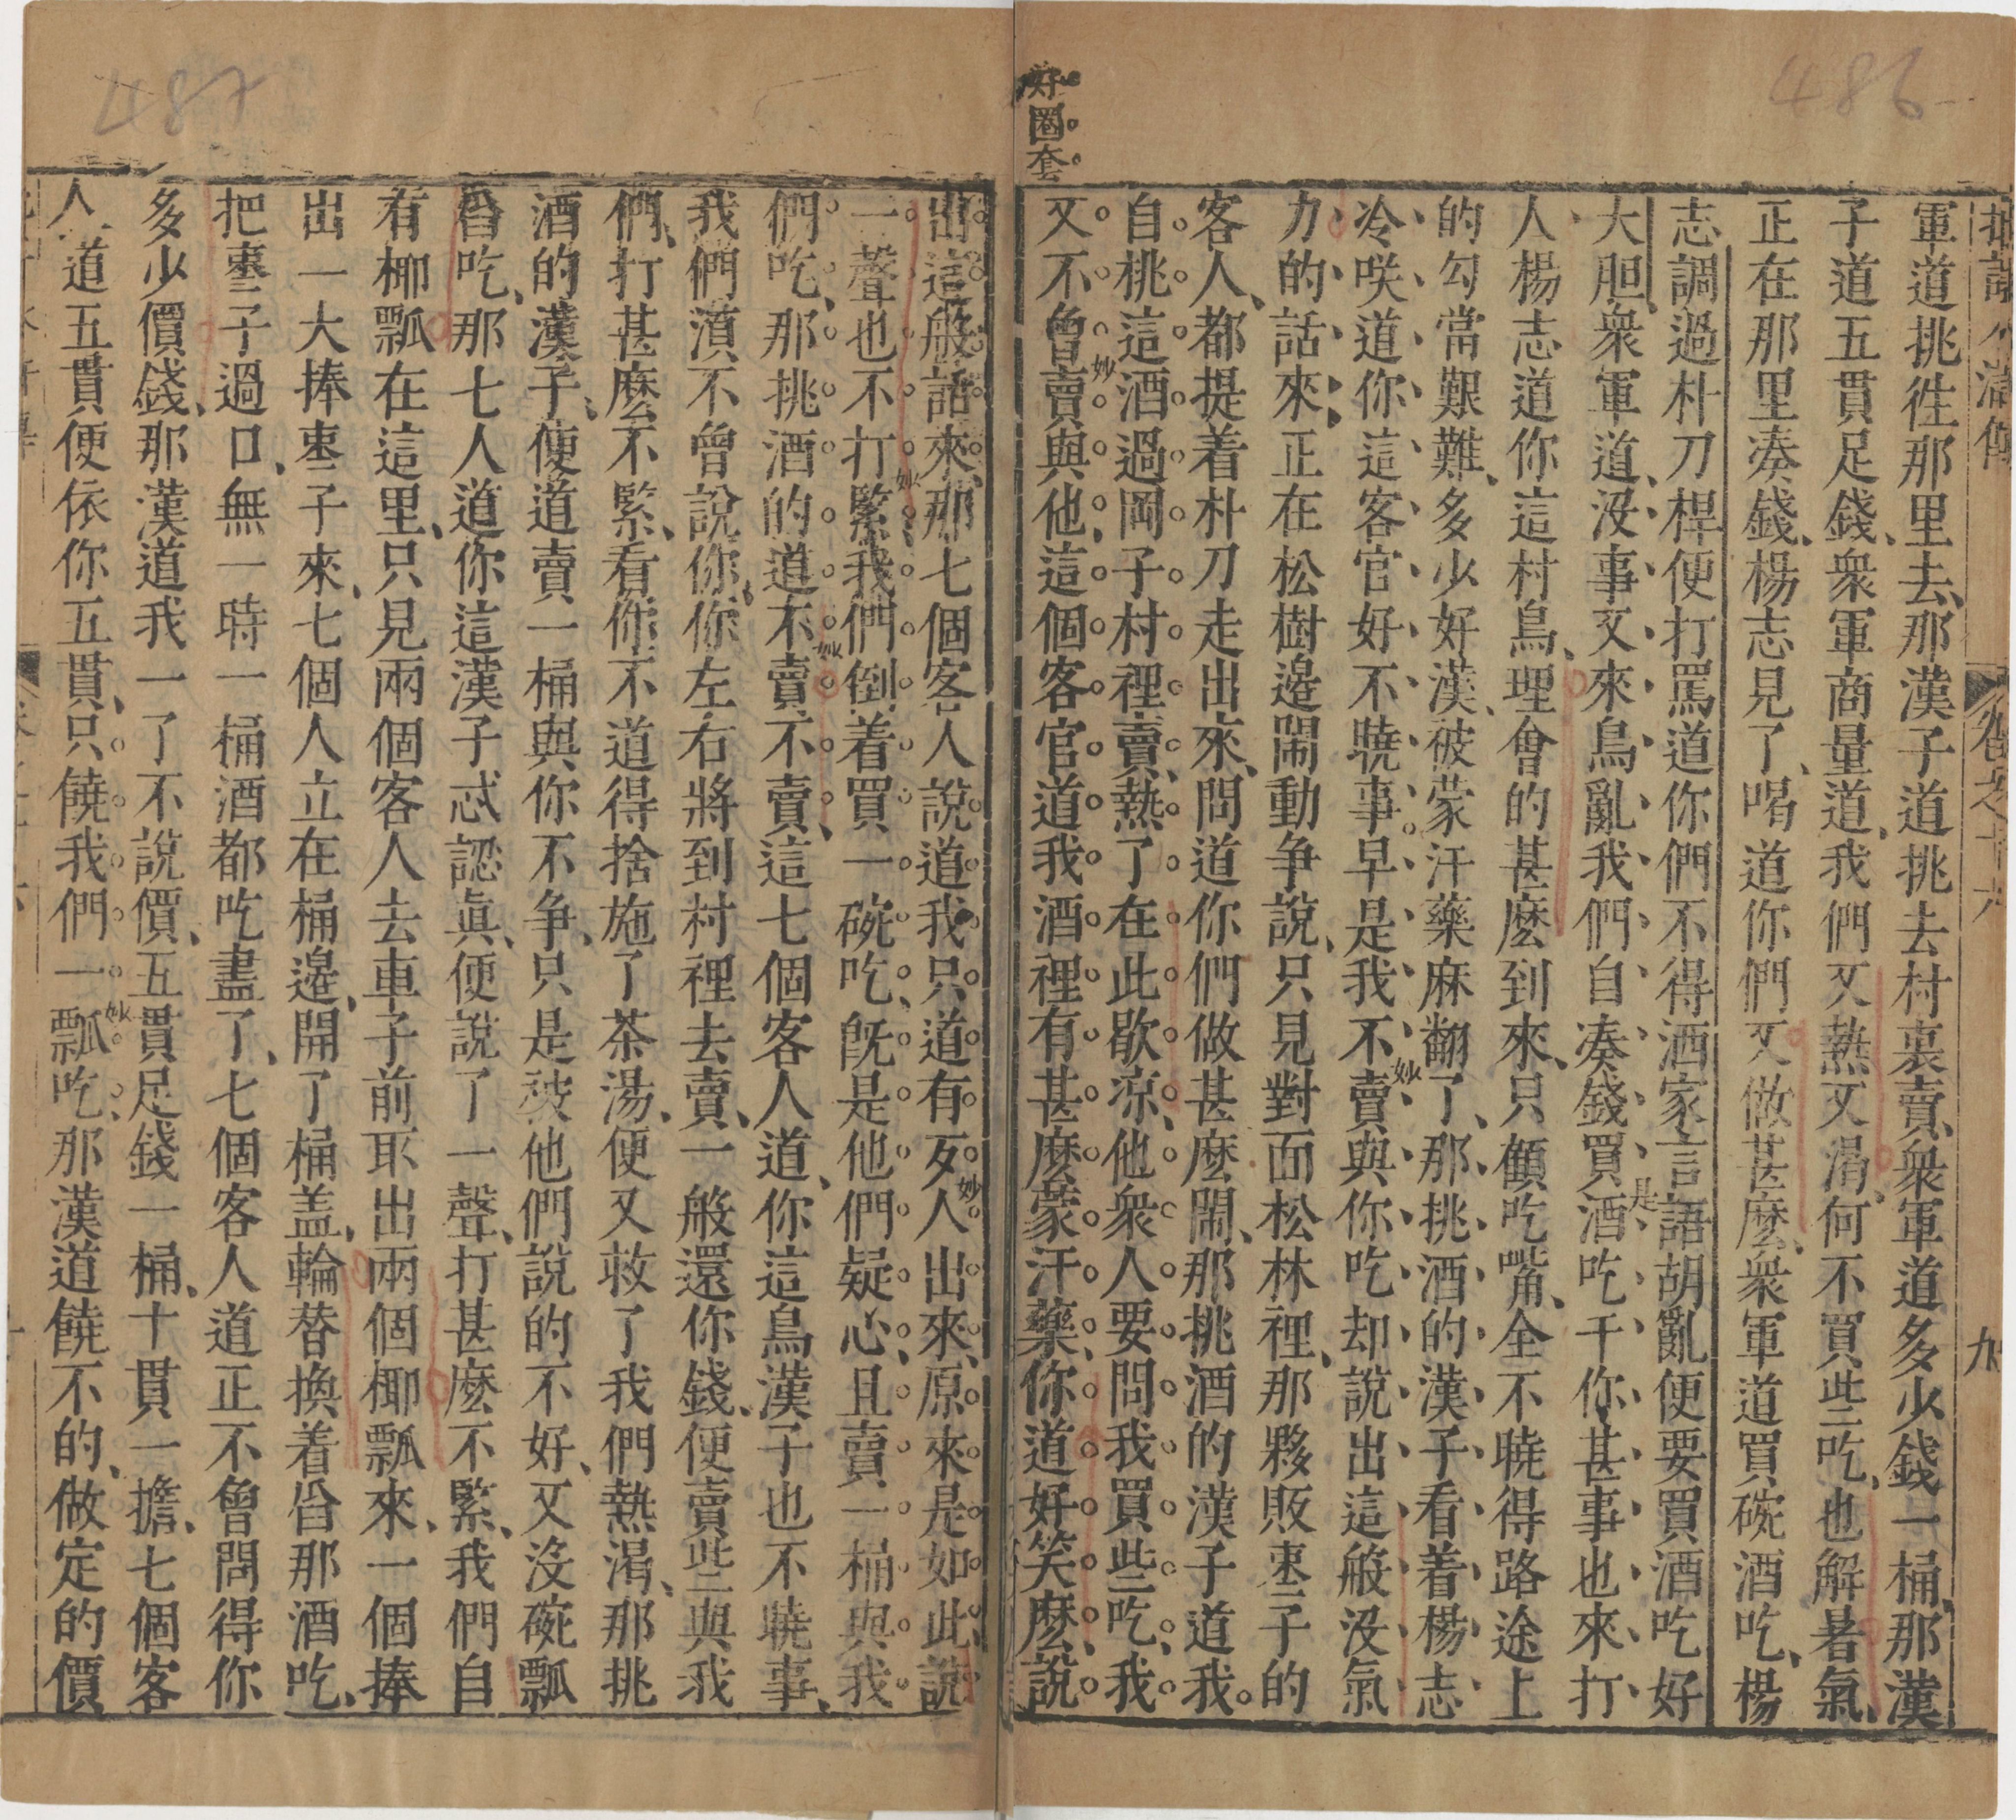 486
好圈套
軍道挑徃那里去那漢子道挑去村裏賣衆軍道多少錢一桶那漢
子道五貫足錢衆軍商量道我們又熱又渴何不買些吃也解暑氣
正在那里湊錢楊志見了喝道你們又做甚麽衆軍道買碗酒吃楊
志調過朴刀桿便打罵道你們不得洒家言語胡亂便要買酒吃好
大胆衆軍道没事又來鳥亂我們自湊錢買酒吃干你甚事也來打
是
人楊志道你這村鳥理會的甚麽到來只顧吃嘴全不曉得路途上
的勾當艱難多少好漢被蒙汗藥麻翻了那挑酒的漢子看着楊志
冷咲道你這客官好不曉事早是我不賣與你吃却說出這般没氣
妙
力的話來正在松樹邊鬧動爭說只見對面松林裡那夥販枣子的
客人都提着朴刀走出來問道你們做甚麽鬧那挑酒的漢子道我
自挑這酒過岡子村裡賣熱了在此歇凉他衆人要問我買些吃我
又不曾賣與他這個客官道我酒裡有甚麽蒙汗藥你道好笑麽說
妙
487
出這般話來那七個客人說道我只道有歹人出來原來是如此說
妙
一聲也不打緊我們倒着買一碗吃旣是他們疑心且賣一桶與我
妙
們吃那挑酒的道不賣不賣這七個客人道你這鳥漢子也不曉事
我們湏不曾說你你左右將到村裡去賣一般還你錢便賣些與我
們打甚麽不緊看你不道得捨施了茶湯便又救了我們熱渴那挑
酒的漢子便道賣一桶與你不争只是被他們說的不好又沒碗瓢
舀吃那七人道你這漢子忒認真便說了一聲打甚麽不緊我們自
有椰瓢在這里只見兩個客人去車子前取出兩個椰瓢來一個捧
出一大捧枣子來七個人立在桶邊開了桶盖輪替換着舀那酒吃
把枣子過口無一時一桶酒都吃盡了七個客人道正不曾問得你
多少價錢那漢道我一了不說價五貫足錢一桶十貫一擔七個客
人道五貫便依你五貫只饒我們一瓢吃那漢道饒不的做定的價
妙